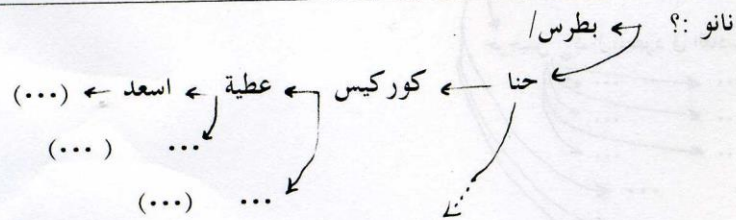 نانو :؟ ← بطرس/
حنا ← كوركيس ← عطية ← اسعد ← (...)
... (...)
... (...)
...